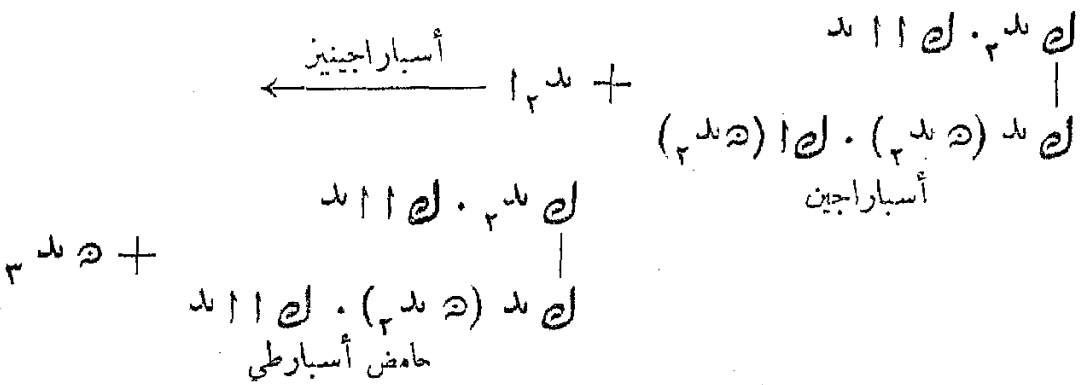 ك يد٢ . ك ا ا يد
ك يد (ن يد٢) . ك ا (ن يد٢)
أسباراجين
+ يد٢ ا
أسباراجينيز
ك يد٢ . ك ا ا يد
ك يد (ن يد٢) . ك ا ا يد
حامض أسبارطي
+ ن يد٣